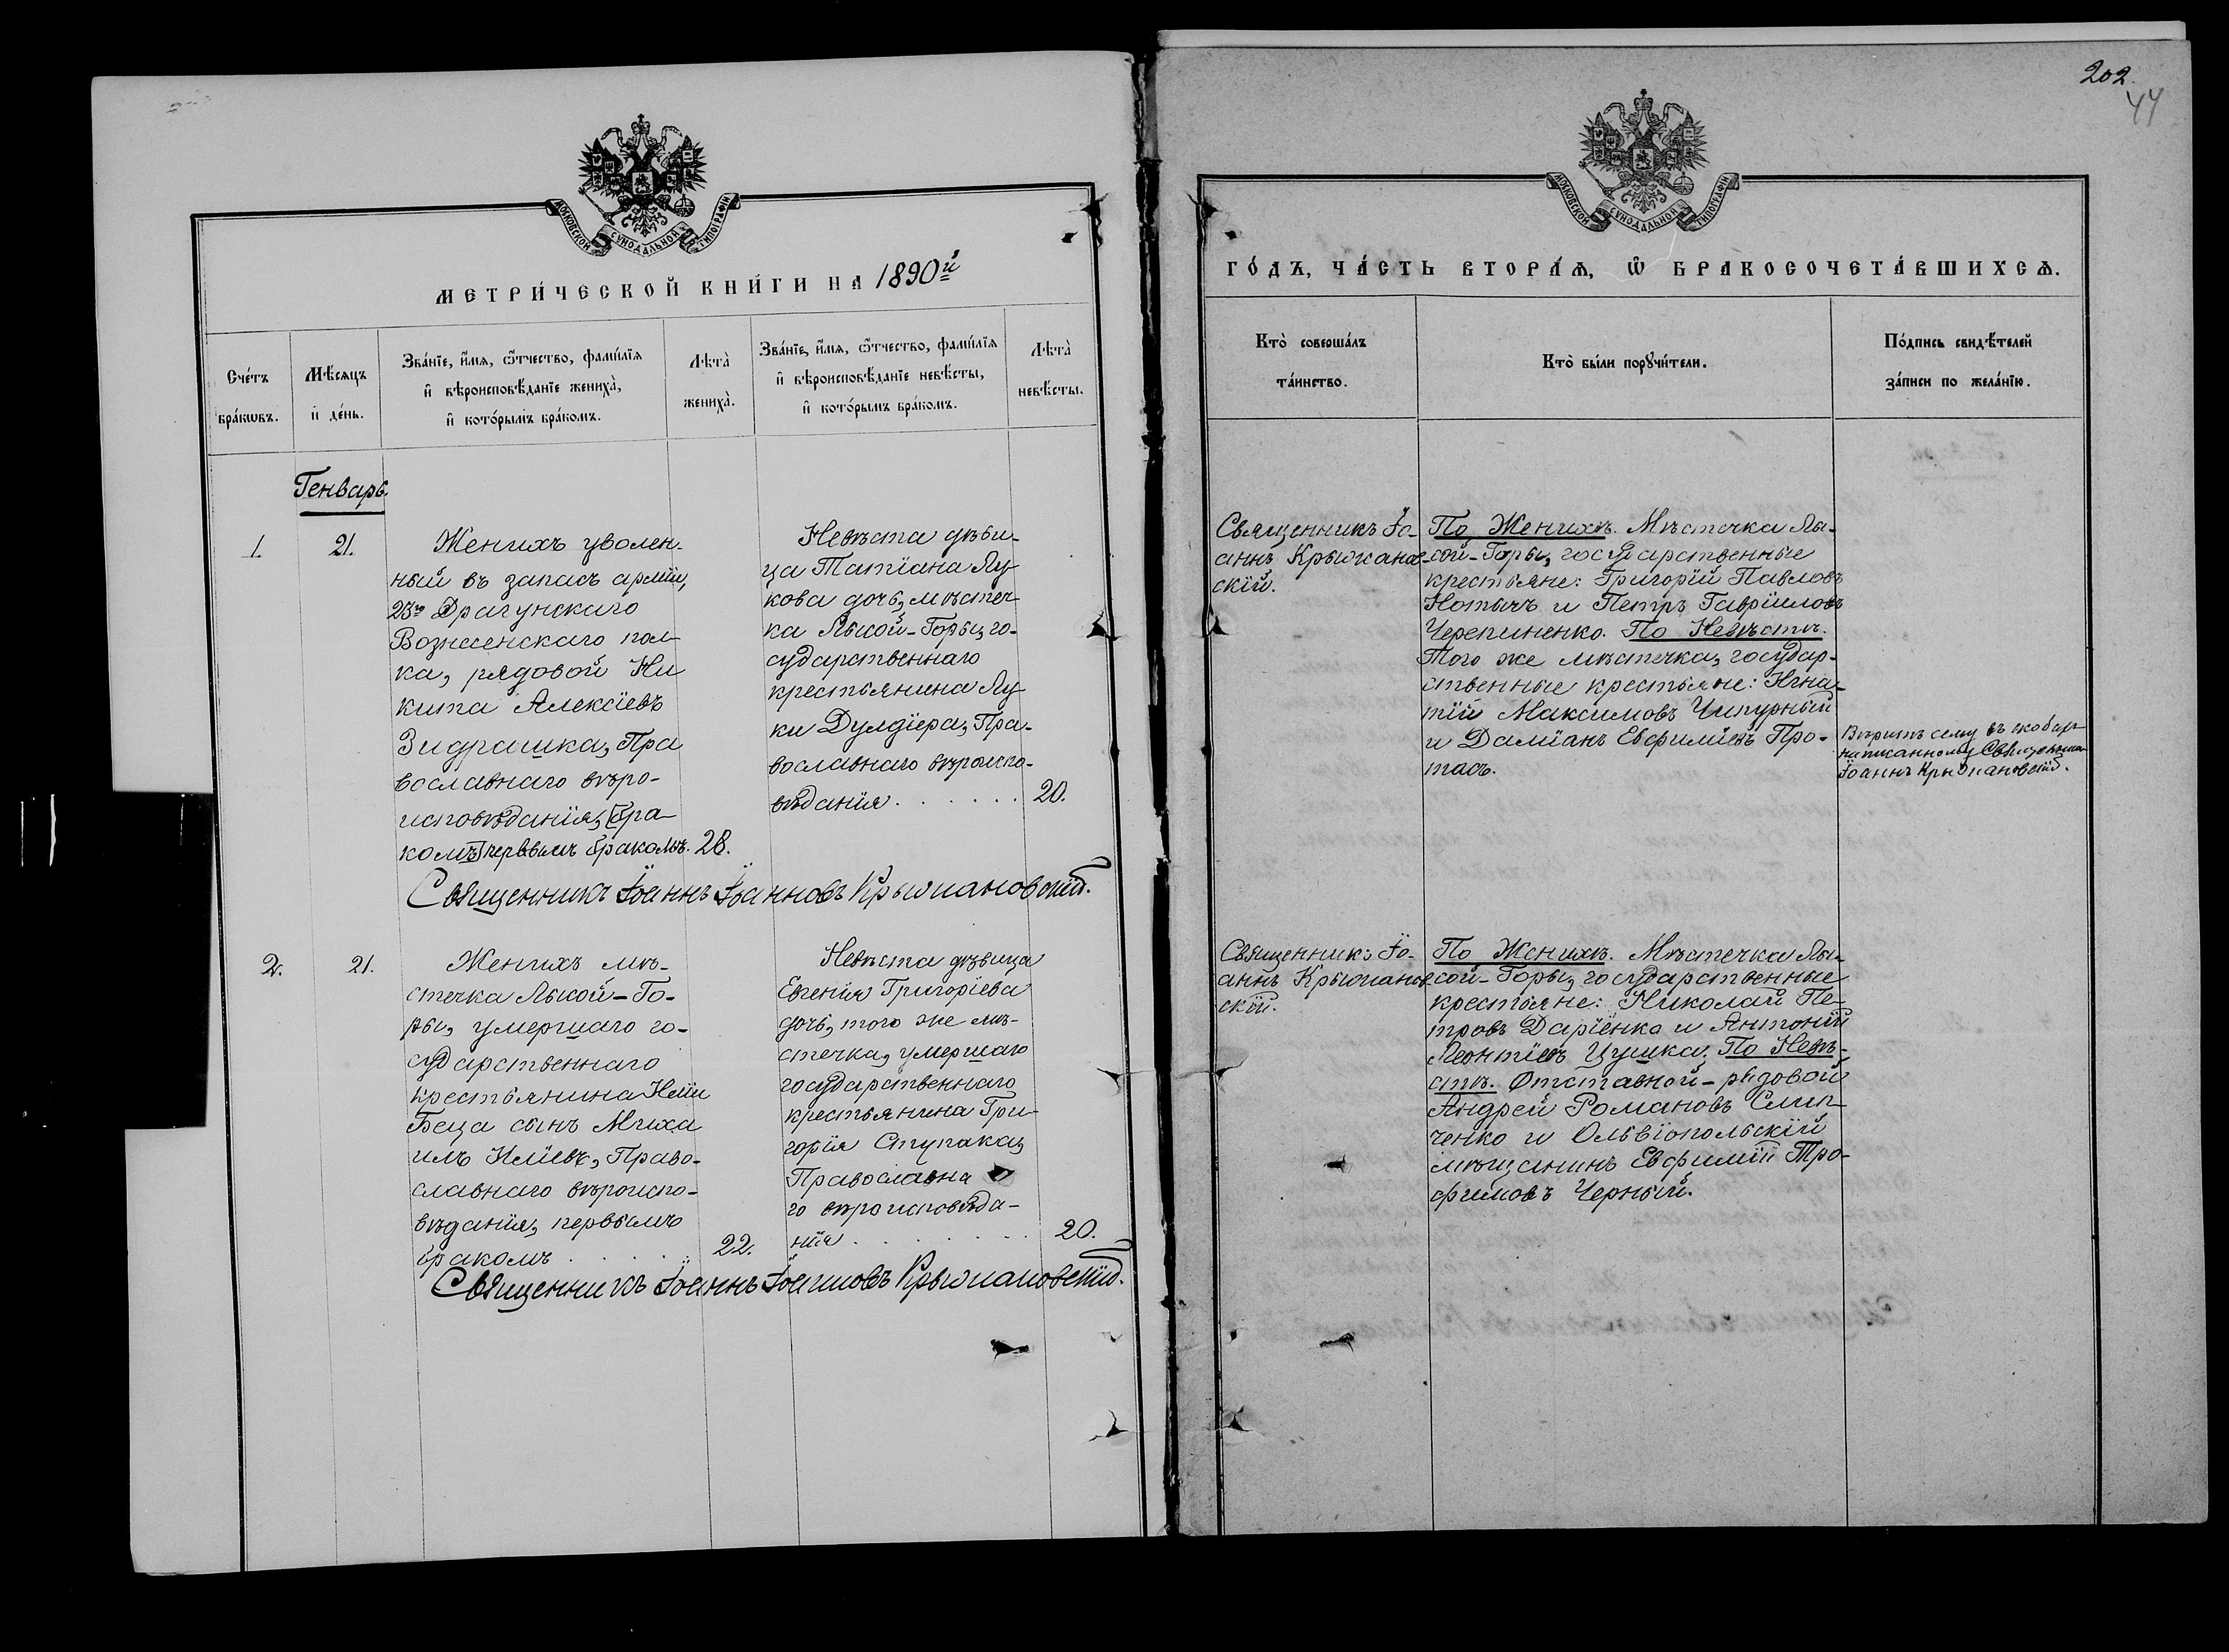 202.
44
МОСКОВСКОЙ СУНОДАЛЬНОЙ ТИПОГРАФІИ
МЕТРИ́ЧЕСКОЙ КНИ́ГИ НА 1890й
Сче́тъ бра́кѡвъ.
Мѣ́сяцъ и҆ де́нь.
Зва́нїе, и҆́мѧ, ѻ҆́тчество, фами́лїѧ
и҆ вѣроисповѣ́данїе жениха̀,
и҆ кото́рымъ бра́комъ.
Лѣта̀ жениха̀.
Зва́нїе, и҆́мѧ, ѻ҆́тчество, фами́лїѧ
и҆ вѣроисповѣ́данїе невѣ́сты,
и҆ кото́рымъ бра́комъ.
Лѣта̀ невѣ́сты.
Генварь.
1.
21.
Женихъ уволен-
ный въ запасъ арміи,
23го Драгунскаго
Вознесенскаго пол-
ка, рядовой Ни
кита Алексіевъ
Зидрашка, Пра
вославнаго вѣро-
исповѣданія, [бра-
комъ] первымъ бракомъ. 28.
Невѣста дѣви-
ца Татіана Лу-
кова дочь, мѣстеч-
ка Лысой-Горы, го-
сударственнаго
крестьянина Лу-
ки Дулдіера, Пра-
вославнаго вѣроиспо-
вѣданія . . . . . . 20.
Священникъ Іоаннъ Іоанновъ Крыжановскій.
2.
21.
Женихъ мѣ-
стечка Лысой-Го-
ры, умершаго го-
сударственнаго
крестьянина Иліи
Беца сынъ Миха
илъ Иліевъ, Право-
славнаго вѣроиспо-
вѣданія, первымъ
бракомъ . . . . . 22.
Невѣста дѣвица
Евгенія Григоріева
дочь, того же мѣ-
стечка, умершаго
государственнаго
крестьянина Гри-
горія Ступака,
Православна
го вѣроисповѣда-
нія . . . . . . . . 20.
Священникъ Іоаннъ Іоанновъ Крыжановскій.
МОСКОВСКОЙ СУНОДАЛЬНОЙ ТИПОГРАФІИ
ГО́ДЪ, ЧА́СТЬ ВТОРА́Ѧ, Ѡ҆ БРАКОСОЧЕТА́ВШИХСѦ.
Кто̀ соверша́лъ
та́инство.
Кто̀ бы́ли порꙋчи́тели.
По́дпись свидѣ́телей
за́писи по жела́нїю.
Священникъ Іо-
аннъ Крыжанов-
скій.
По Женихѣ. Мѣстечка Лы-
сой-Горы, государственные
крестьяне: Григорій Павловъ
Нотычъ и Петръ Гавріиловъ
Черепиненко. По Невѣстѣ.
Того же мѣстечка, государ-
ственные крестьяне: Игна-
тій Максимовъ Чипурный
и Даміанъ Евфиміевъ Про-
тасъ.
Вѣрить сему въ скобахъ
написанному Священникъ
Іоаннъ Крыжановскій.
Священникъ Іо-
аннъ Крыжанов-
скій.
По Женихѣ. Мѣстечка Лы-
сой-Горы, государственные
крестьяне: Николай Пе-
тровъ Даріенко и Антоній
Леонтіевъ Цушка. По Невѣ-
стѣ. Отставной-рядовой
Андрей Романовъ Слип-
ченко и Ольвіопольскій
мѣщанинъ Евфимій Тро-
фимовъ Черный.